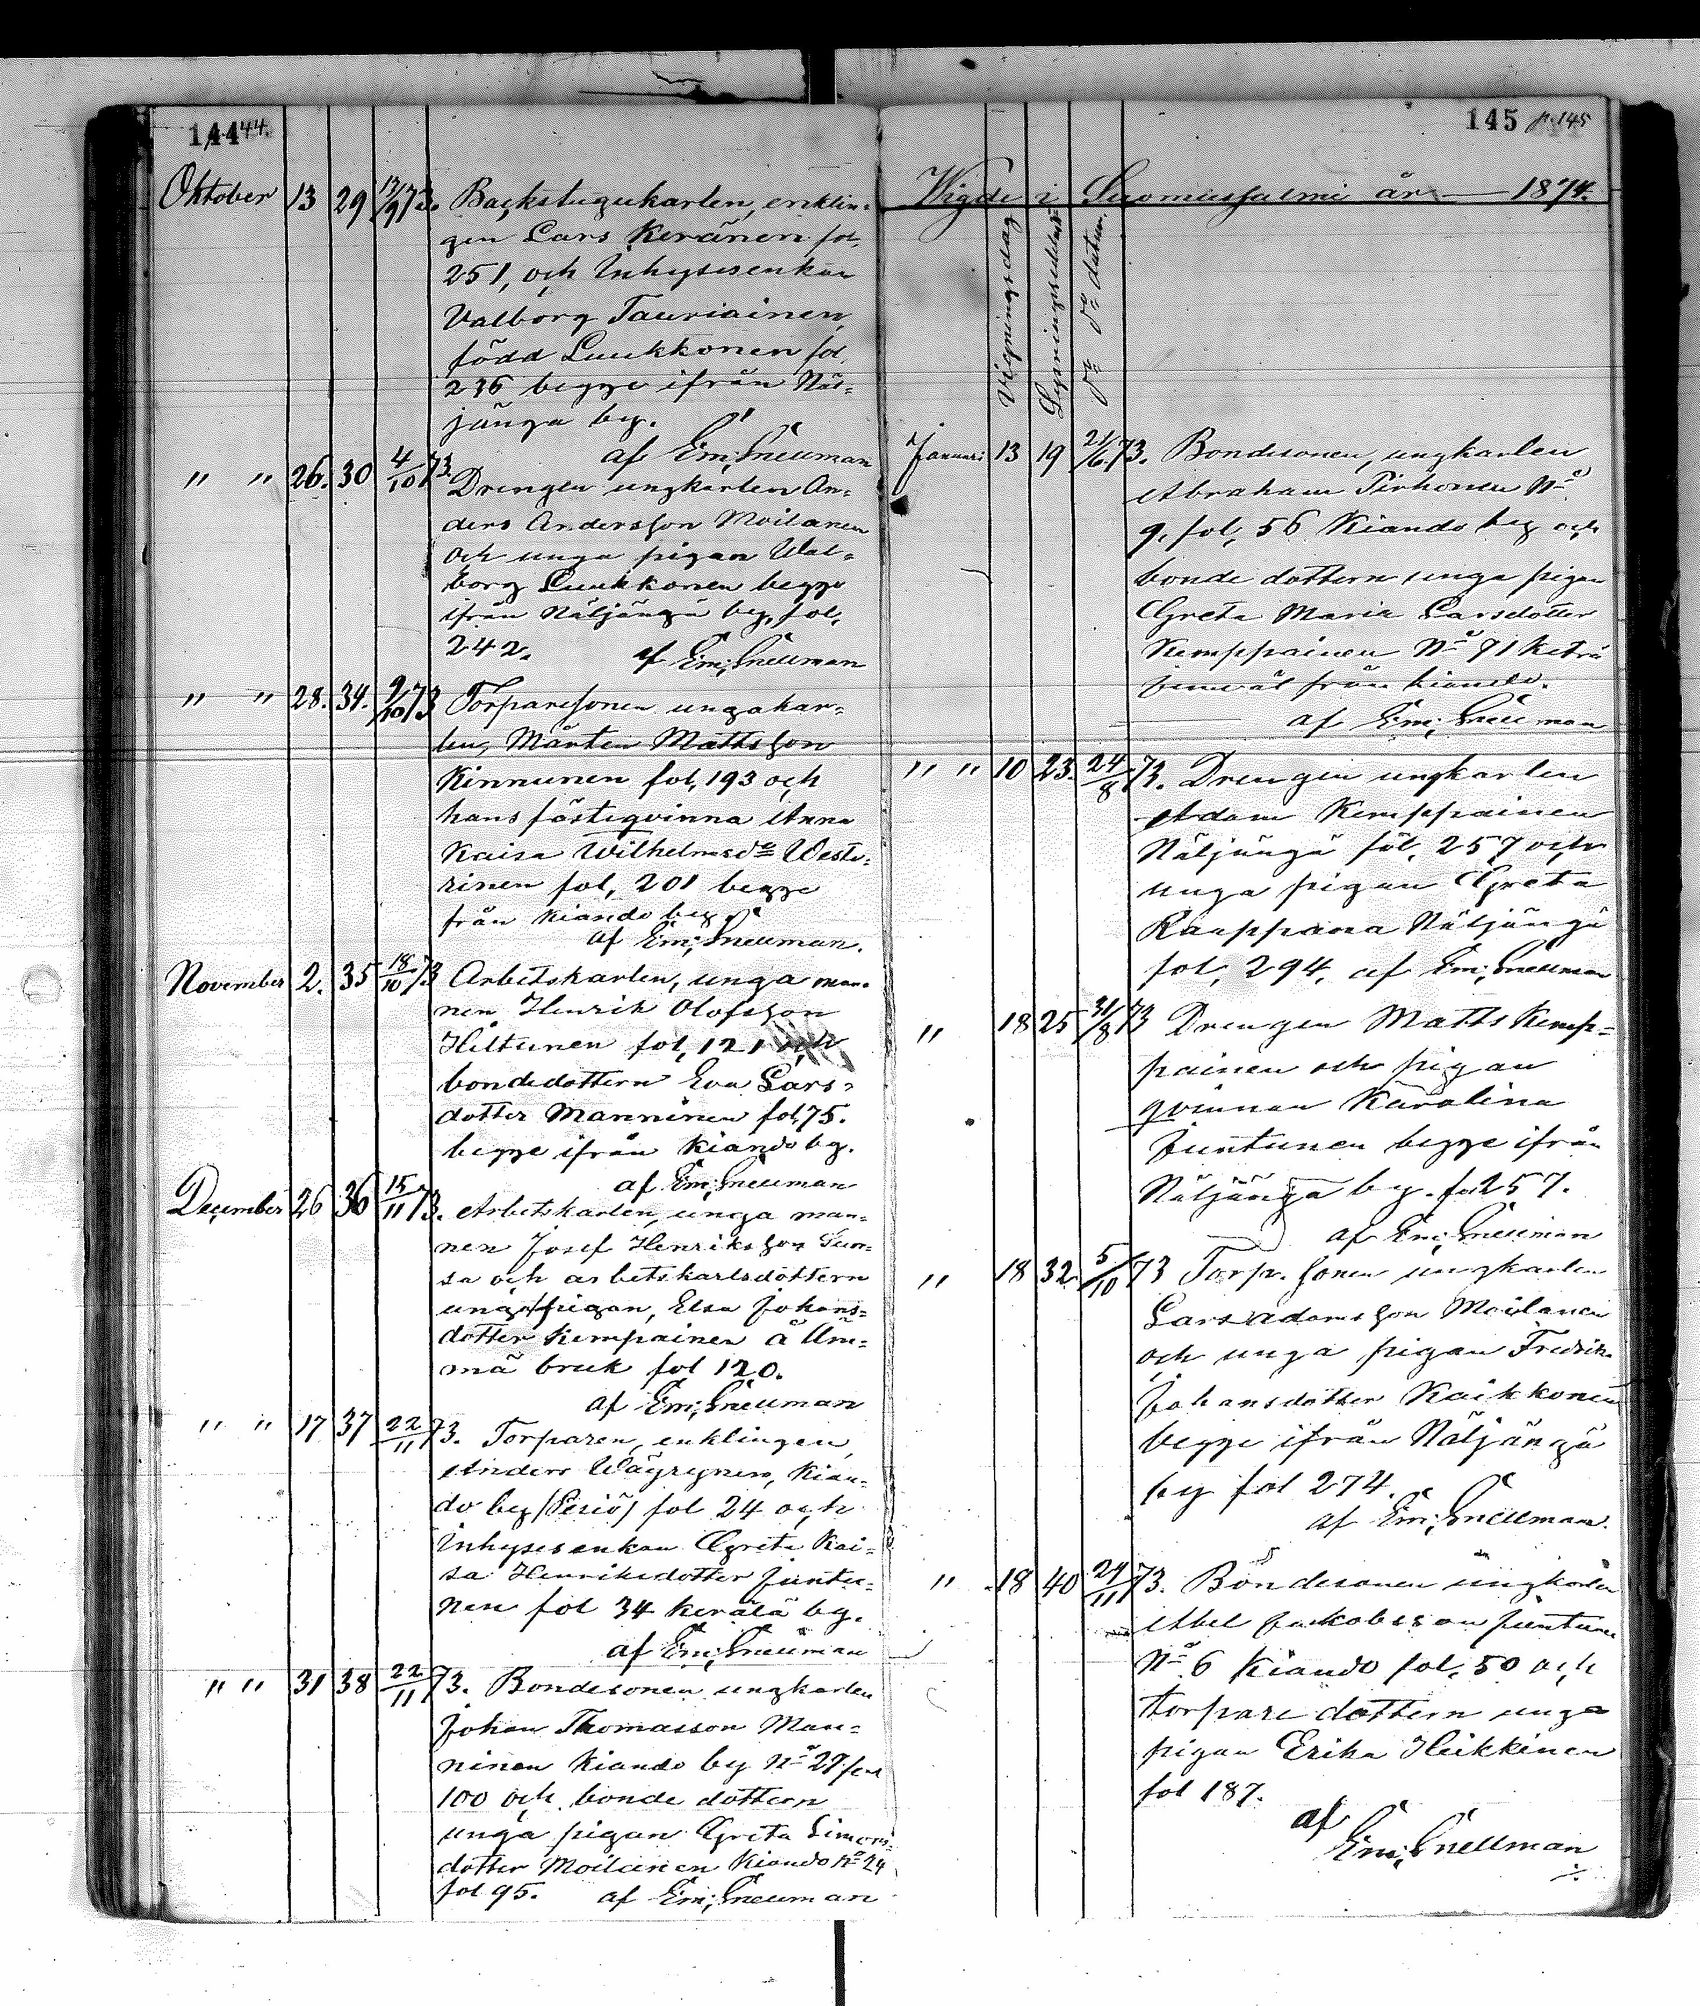 144 44.
Oktober 13 29 13/9 73. Backstugukarlen, enklin-
gen Lars Keränen fol.
251, och Inhysesenkan
Valborg Tauriainen,
född Luukkonen fol.
236 begge ifrån Näl-
jänga by.
af Em; Snellman
" " 26. 30 4/10 73. Drengen ungkarlen An-
ders Andersson Moilanen
och unga pigan Wal-
borg Luukkonen begge
ifrån Näljängä by, fol,
242. af Em; Snellman
" " 28. 34. 9/10 73 Torparesonen ungakar-
len, Mårten Mattsson
Kinnunen fol, 193 och
hans fästeqvinna Anna
Kaisa Wilhelmsdr Weste-
rinen fol, 201 begge
från Kiando by
af Em; Snellman.
November 2. 35 18/10 73 Arbetskarlen, unga man-
nen Henrik Olofsson
Hiltunen fol, 121 och
bondedottern Eva Lars-
dotter Manninen fol, 75.
begge ifrån Kiando by.
af Em; Snellman
December 26 36 15/11 73. Arbetskarlen, unga man-
nen Josef Henriksson
sa och arbetskarlsdottern
unga pigan, Elsa Johans-
dotter Kempainen å Äm-
mä bruk fol 120.
af Em; Snellman
" " 17 37 22/11 73. Torparen, enklingen,
Anders Wäyrynen, Kian-
do by /Periö/ fol 24 och
Inhysesenkan Greta Kai-
sa Henriksdotter Juntu-
nen fol 34 Kerälä by.
af Em; Snellman
" " 31 38 22/11 73. Bondesonen ungkarlen
Johan Thomasson Man-
ninen Kiando by No 27 fol
100 och bonde dottern
unga pigan Greta Simons-
dotter Moilanen Kiando No 24
fol 95. af Em; Snellman
145 p. 145
Wigde i Suomussalmi år 1874.
Vigningsdag
Lysningssedelns
do do datum.
Januari 13 19 21/6 73. Bondesonen, ungkarlen
Abraham Tirkonen No
9. fol, 56 Kiando by och
bonde dottern unga pigan
Greta Maria Larsdotter
Kemppainen No 71
från Kiando.
af Em; Snellman
" " 10 23. 24/8 73. Drengen ungkarlen
Adam Kemppainen
Näljängä fol, 257 och
unga pigan Greta
Kauppana Näljängä
fol, 294, af Em; Snellman
" 18 25 31/8 73 Drengen Matts Kemp-
painen och pigan
qvinnan Karolina
Juntunen begge ifrån
Näljänga by. fol 257.
af Em; Snellman
" 18 32 5/10 73 Torp. sonen ungkarlen
Lars Adamsson Moilanen
och unga pigan Fredrika
Johansdotter Kaikkonen
begge ifrån Näljängä
by fol 274.
af Em; Snellman.
" 18 40 24/11 73. Bondesonen ungkarlen
Abel Jakobsson Juntunen
No 6 Kiando fol, 50 och
torpare dottern unga
pigan Erika Heikkinen
fol 187.
af
Em; Snellman